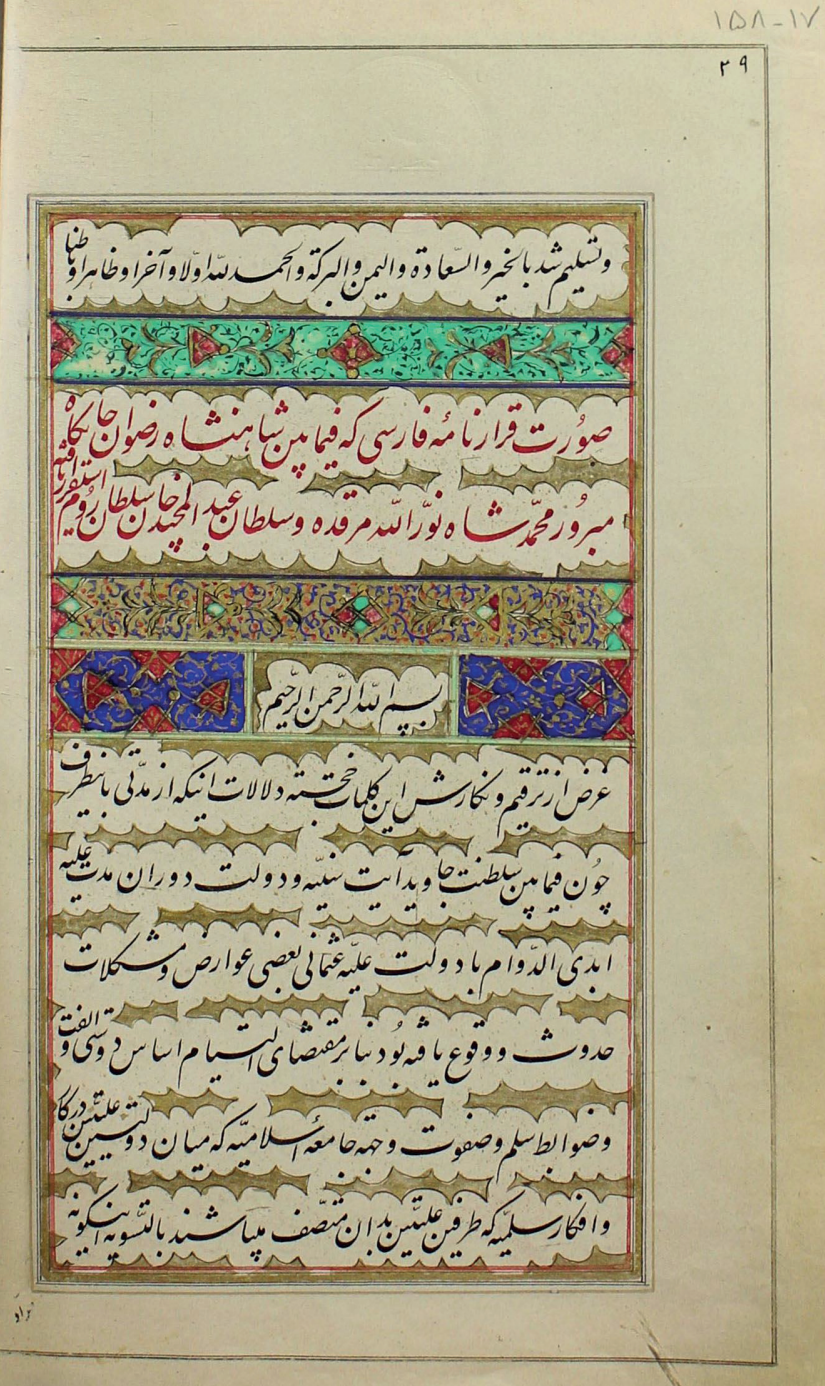 ۱۵۸-۱۷
۲۹
وتسلیم شد بالخیر والسّعادة والیمن والبرکة والحمد للّه اولا وآخرا وظاهرا وباطنا
صورت قرارنامۀ فارسی که فیمابین شاهنشاه رضوان جایگاه
مبرور محمّد شاه نوّر اللّه مرقده وسلطان عبد المجید خان سلطان روم استقرار یافته
بسم اللّه الرّحمن الرّحیم
غرض از ترقیم ونگارش این کلمات خجسته دلالات اینکه از مدّتی باینطرف
چون فیمابین سلطنت جاوید آیت سنیّه ودولت دوران مدت علیّه
ابدی الدّوام با دولت علیّه عثمانی بعضی عوارض ومشکلات
حدوث ووقوع یافته بود بنا بر مقتضای التیام اساس دوستی والفت
وضوابط سلم وصفوت وجهة جامعه اسلامیّه که میان دولتین علیّتین درکار
وافکار سلمیّه که طرفین علیّتین بدان متّصف میباشند بالتّسویه اینگونه
نزاد